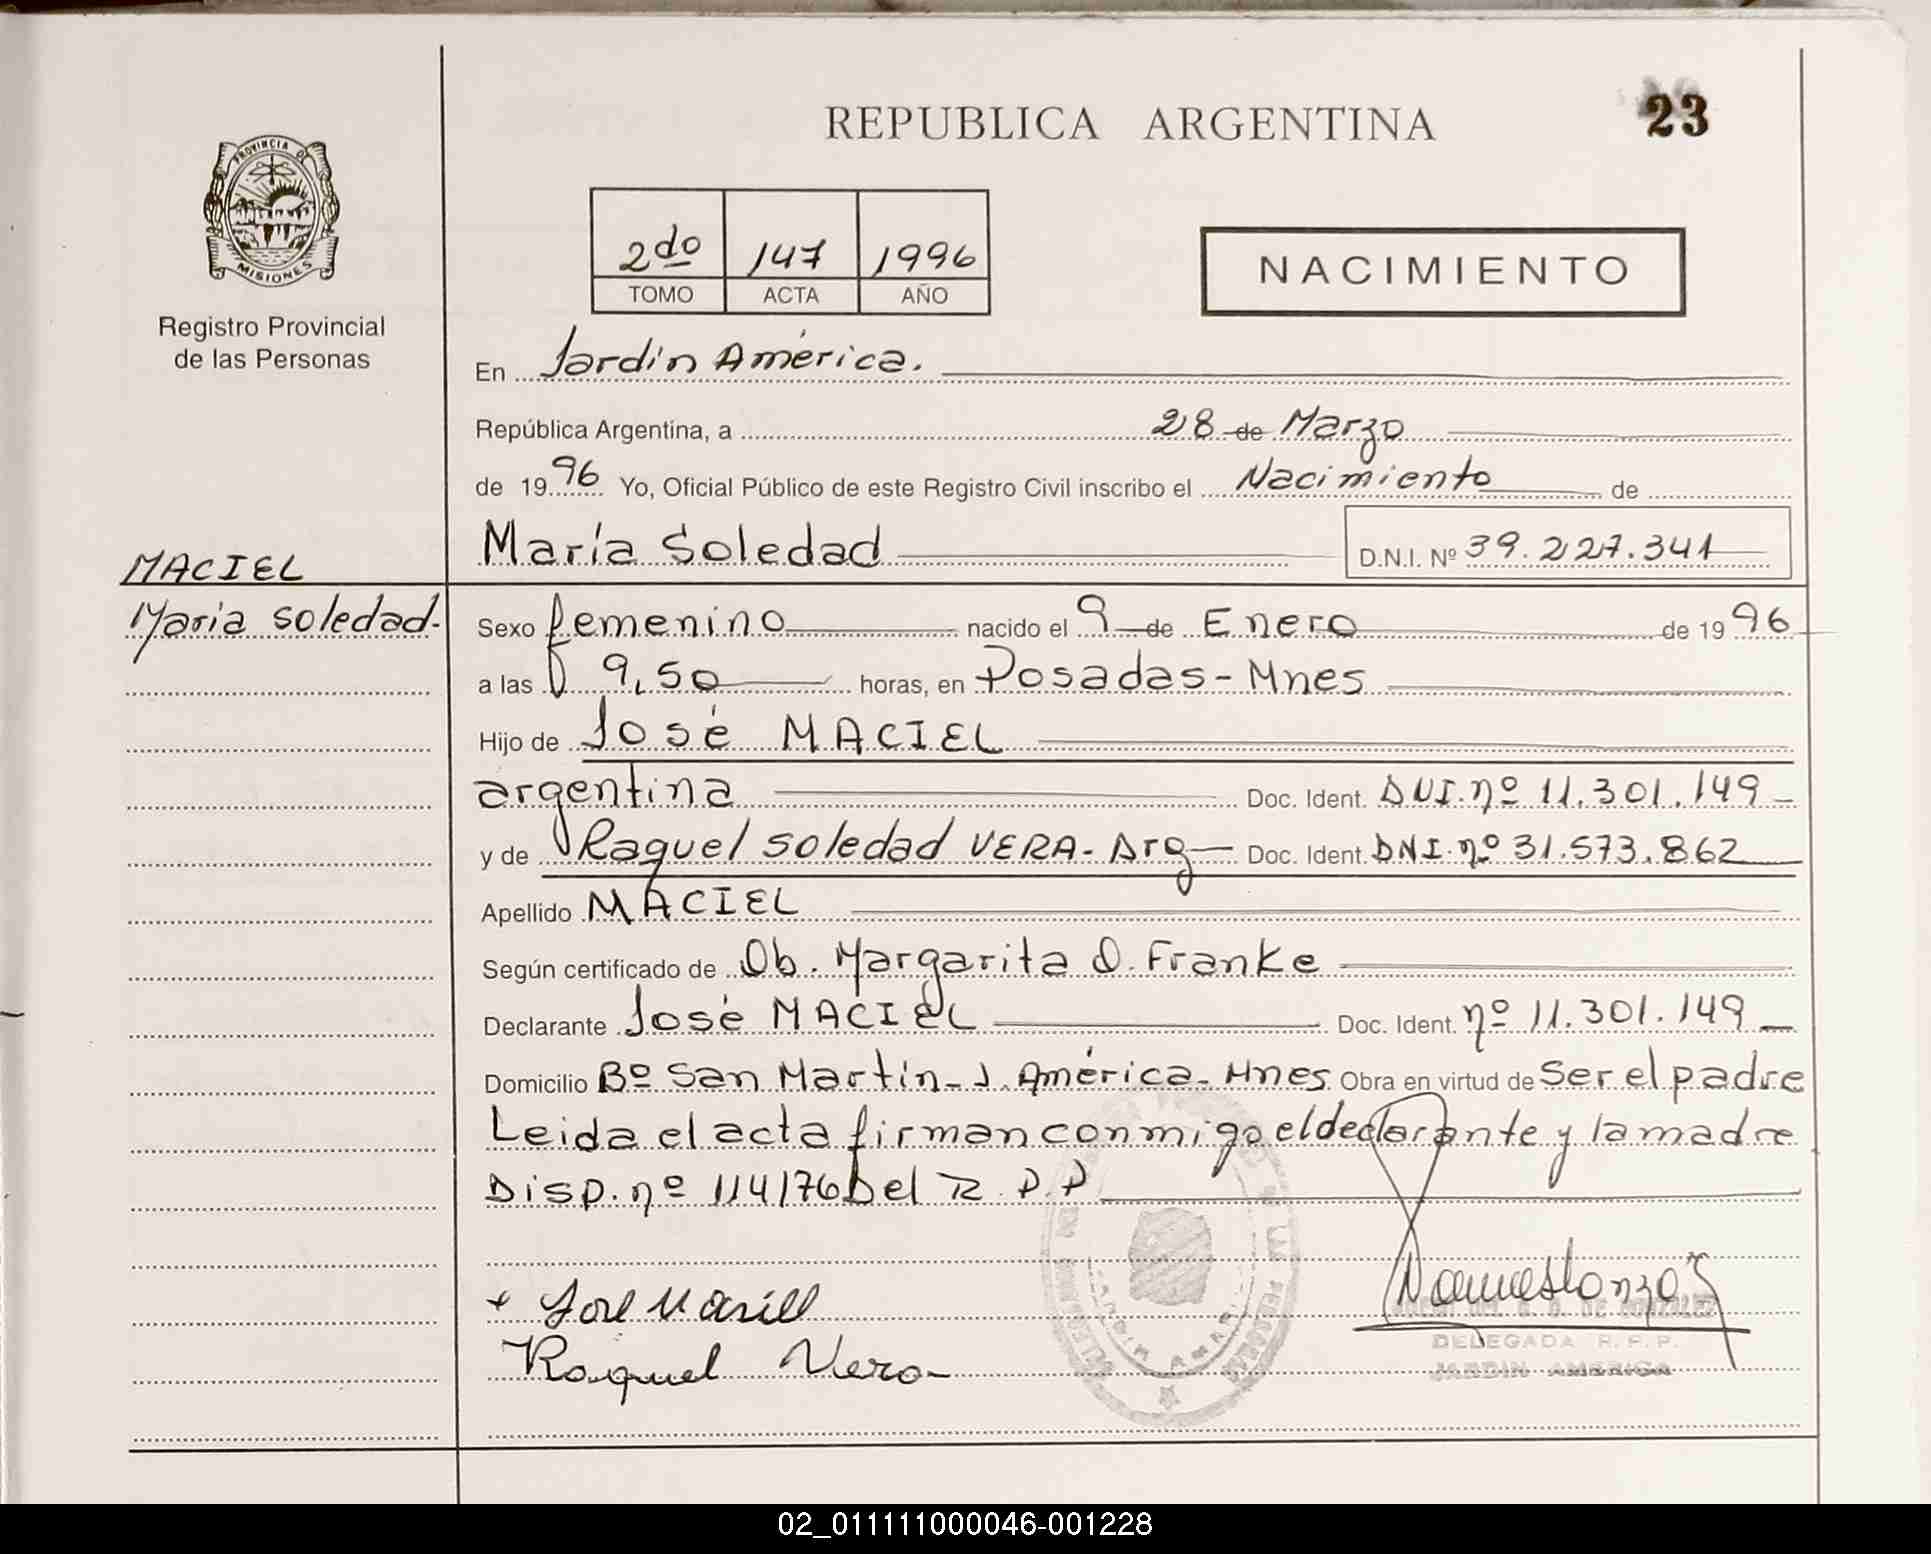 REPUBLICA ARGENTINA
23
PROVINCIA DE
MISIONES
Registro Provincial
de las Personas
2do 147 1996
TOMO ACTA AÑO
NACIMIENTO
En Jardín América.
República Argentina, a 28 de Marzo
de 1996 Yo, Oficial Público de este Registro Civil inscribo el Nacimiento de
María Soledad D.N.I. Nº 39.227.341
MACIEL
María Soledad.
Sexo femenino nacido el 9 de Enero de 1996
a las 9,50 horas, en Posadas - Mnes
Hijo de José MACIEL
argentina Doc. Ident. DNI. nº 11.301.149
y de Raquel Soledad VERA - Arg Doc. Ident. DNI. nº 31.573.862
Apellido MACIEL
Según certificado de Ob. Margarita O. Franke
Declarante José MACIEL Doc. Ident. nº 11.301.149
Domicilio Bº San Martín - J. América - Mnes Obra en virtud de Ser el padre
Leida el acta firman conmigo el declarante y la madre
Disp. nº 114/76 Del R.P.P
Raquel Vera
DE GONZALEZ
DELEGADA R.P.P.
JARDIN AMERICA
JARDIN AMERICA
02_011111000046-001228